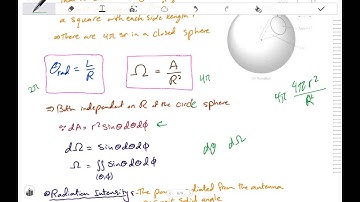 a square with each side length
⇒ There are 4π sr in a closed sphere
2π θrad = L/R Ω = A/R² 4π
4π 4πr²/R²
⇒ Both independent on R of the circle sphere
∵ dA = r² sinθ dθ dφ
dΩ = sinθ dθ dφ
dθ dΩ
Ω = ∬ sinθ dθ dφ
(θ,φ)
Radiation Intensity: The radiated from the antenna
solid angle